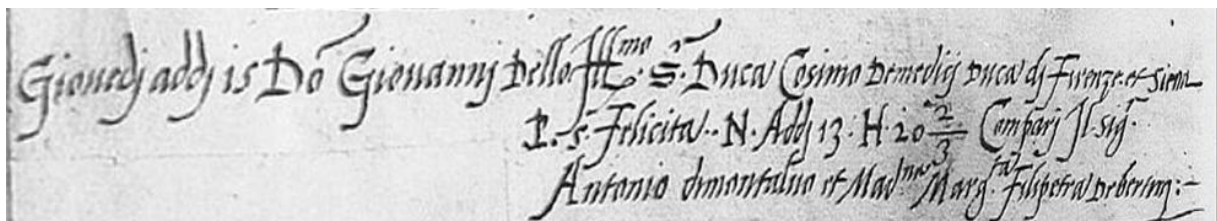 Giouedj addj 15 Dõ Giouannj Dello Ill.mo S. Duca Cosimo Demedicj Duca dj Firenze. et Siena
P. S. Felicita . . N. Addj 13 . H . 20 2/3 Comparj Il Sig.
Antonio dimontaluo et Mad.na Marg.ta